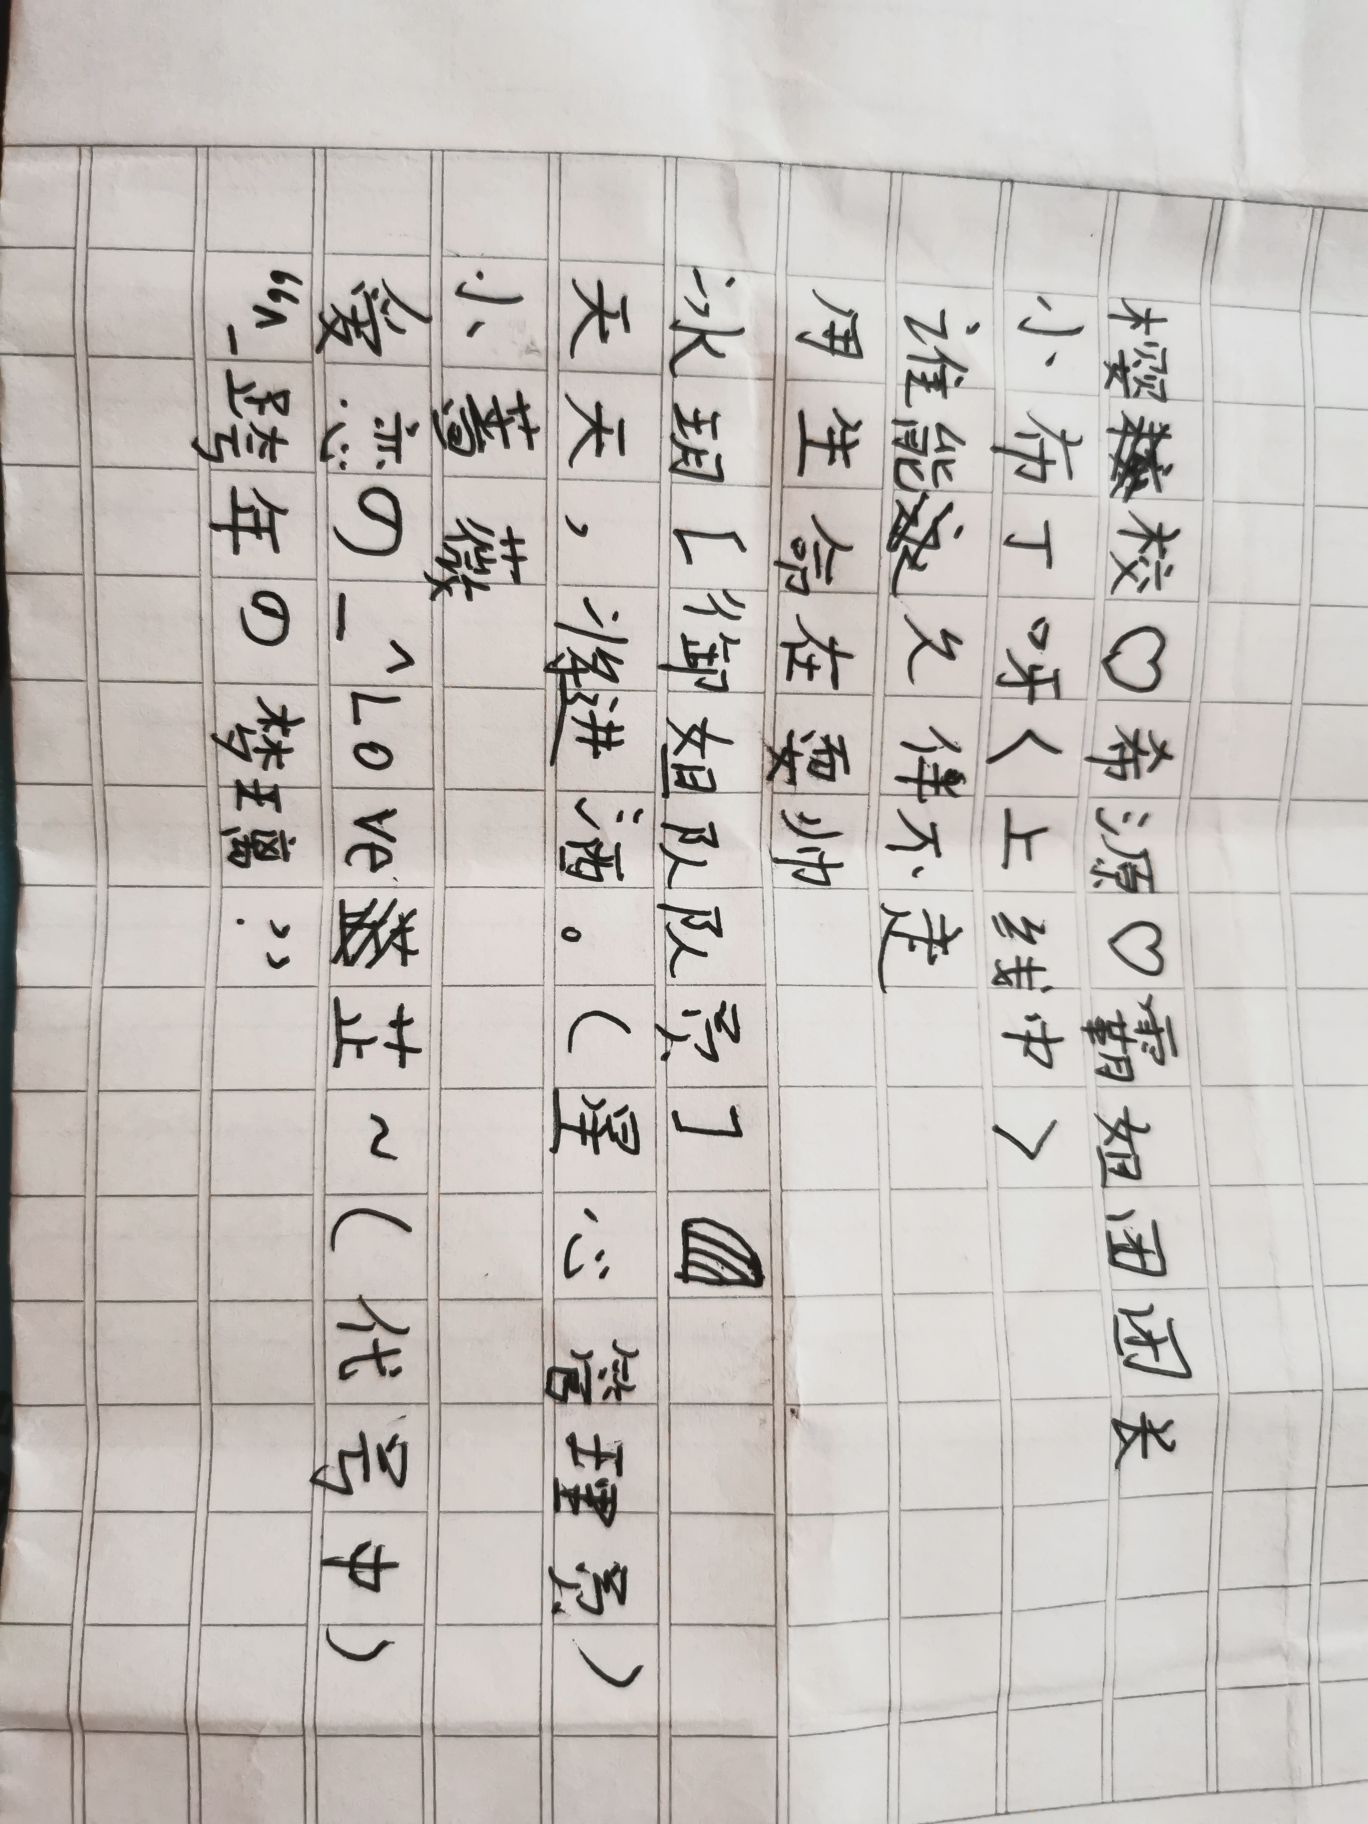 樱校♡希源♡霸姐团团长
小布丁呀<上线中>
谁能久伴不走
用生命在耍帅
冰玥[御姐队队员]
天天，将进酒。(星心管理员)
小蔷薇
爱恋の_^Love芷~(代号中)
“^_跨年の梦璃.”